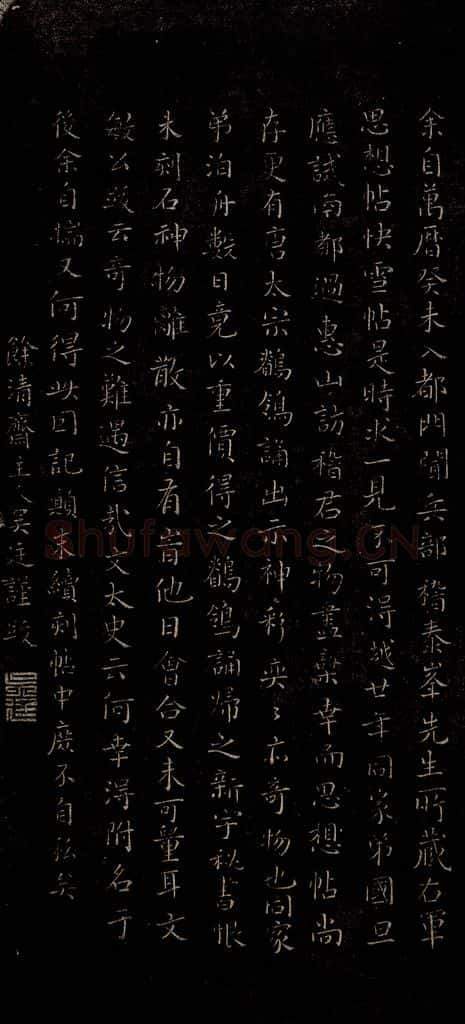 余自萬曆癸未入都門聞兵部嵇泰峯先生所藏右軍
思想帖快雪帖是時求一見不可得越廿年同家弟國旦
應試南都過惠山訪嵇君之物盡棄幸而思想帖尚
存更有唐太宗鶺鴒誦出示神彩奕〻亦奇物也同家
弟泊舟數日竟以重價得之鶺鴒誦歸之新宇秘書恨
未刻石神物離散亦自有旨他日會合又未可量耳文
敏公跋云奇物之難遇信哉文太史云何幸淂附名于
後余自揣又何得此因記顛末續刻帖中廣不自私矣
餘清齋主人吳廷謹跋
Shufawang.CN